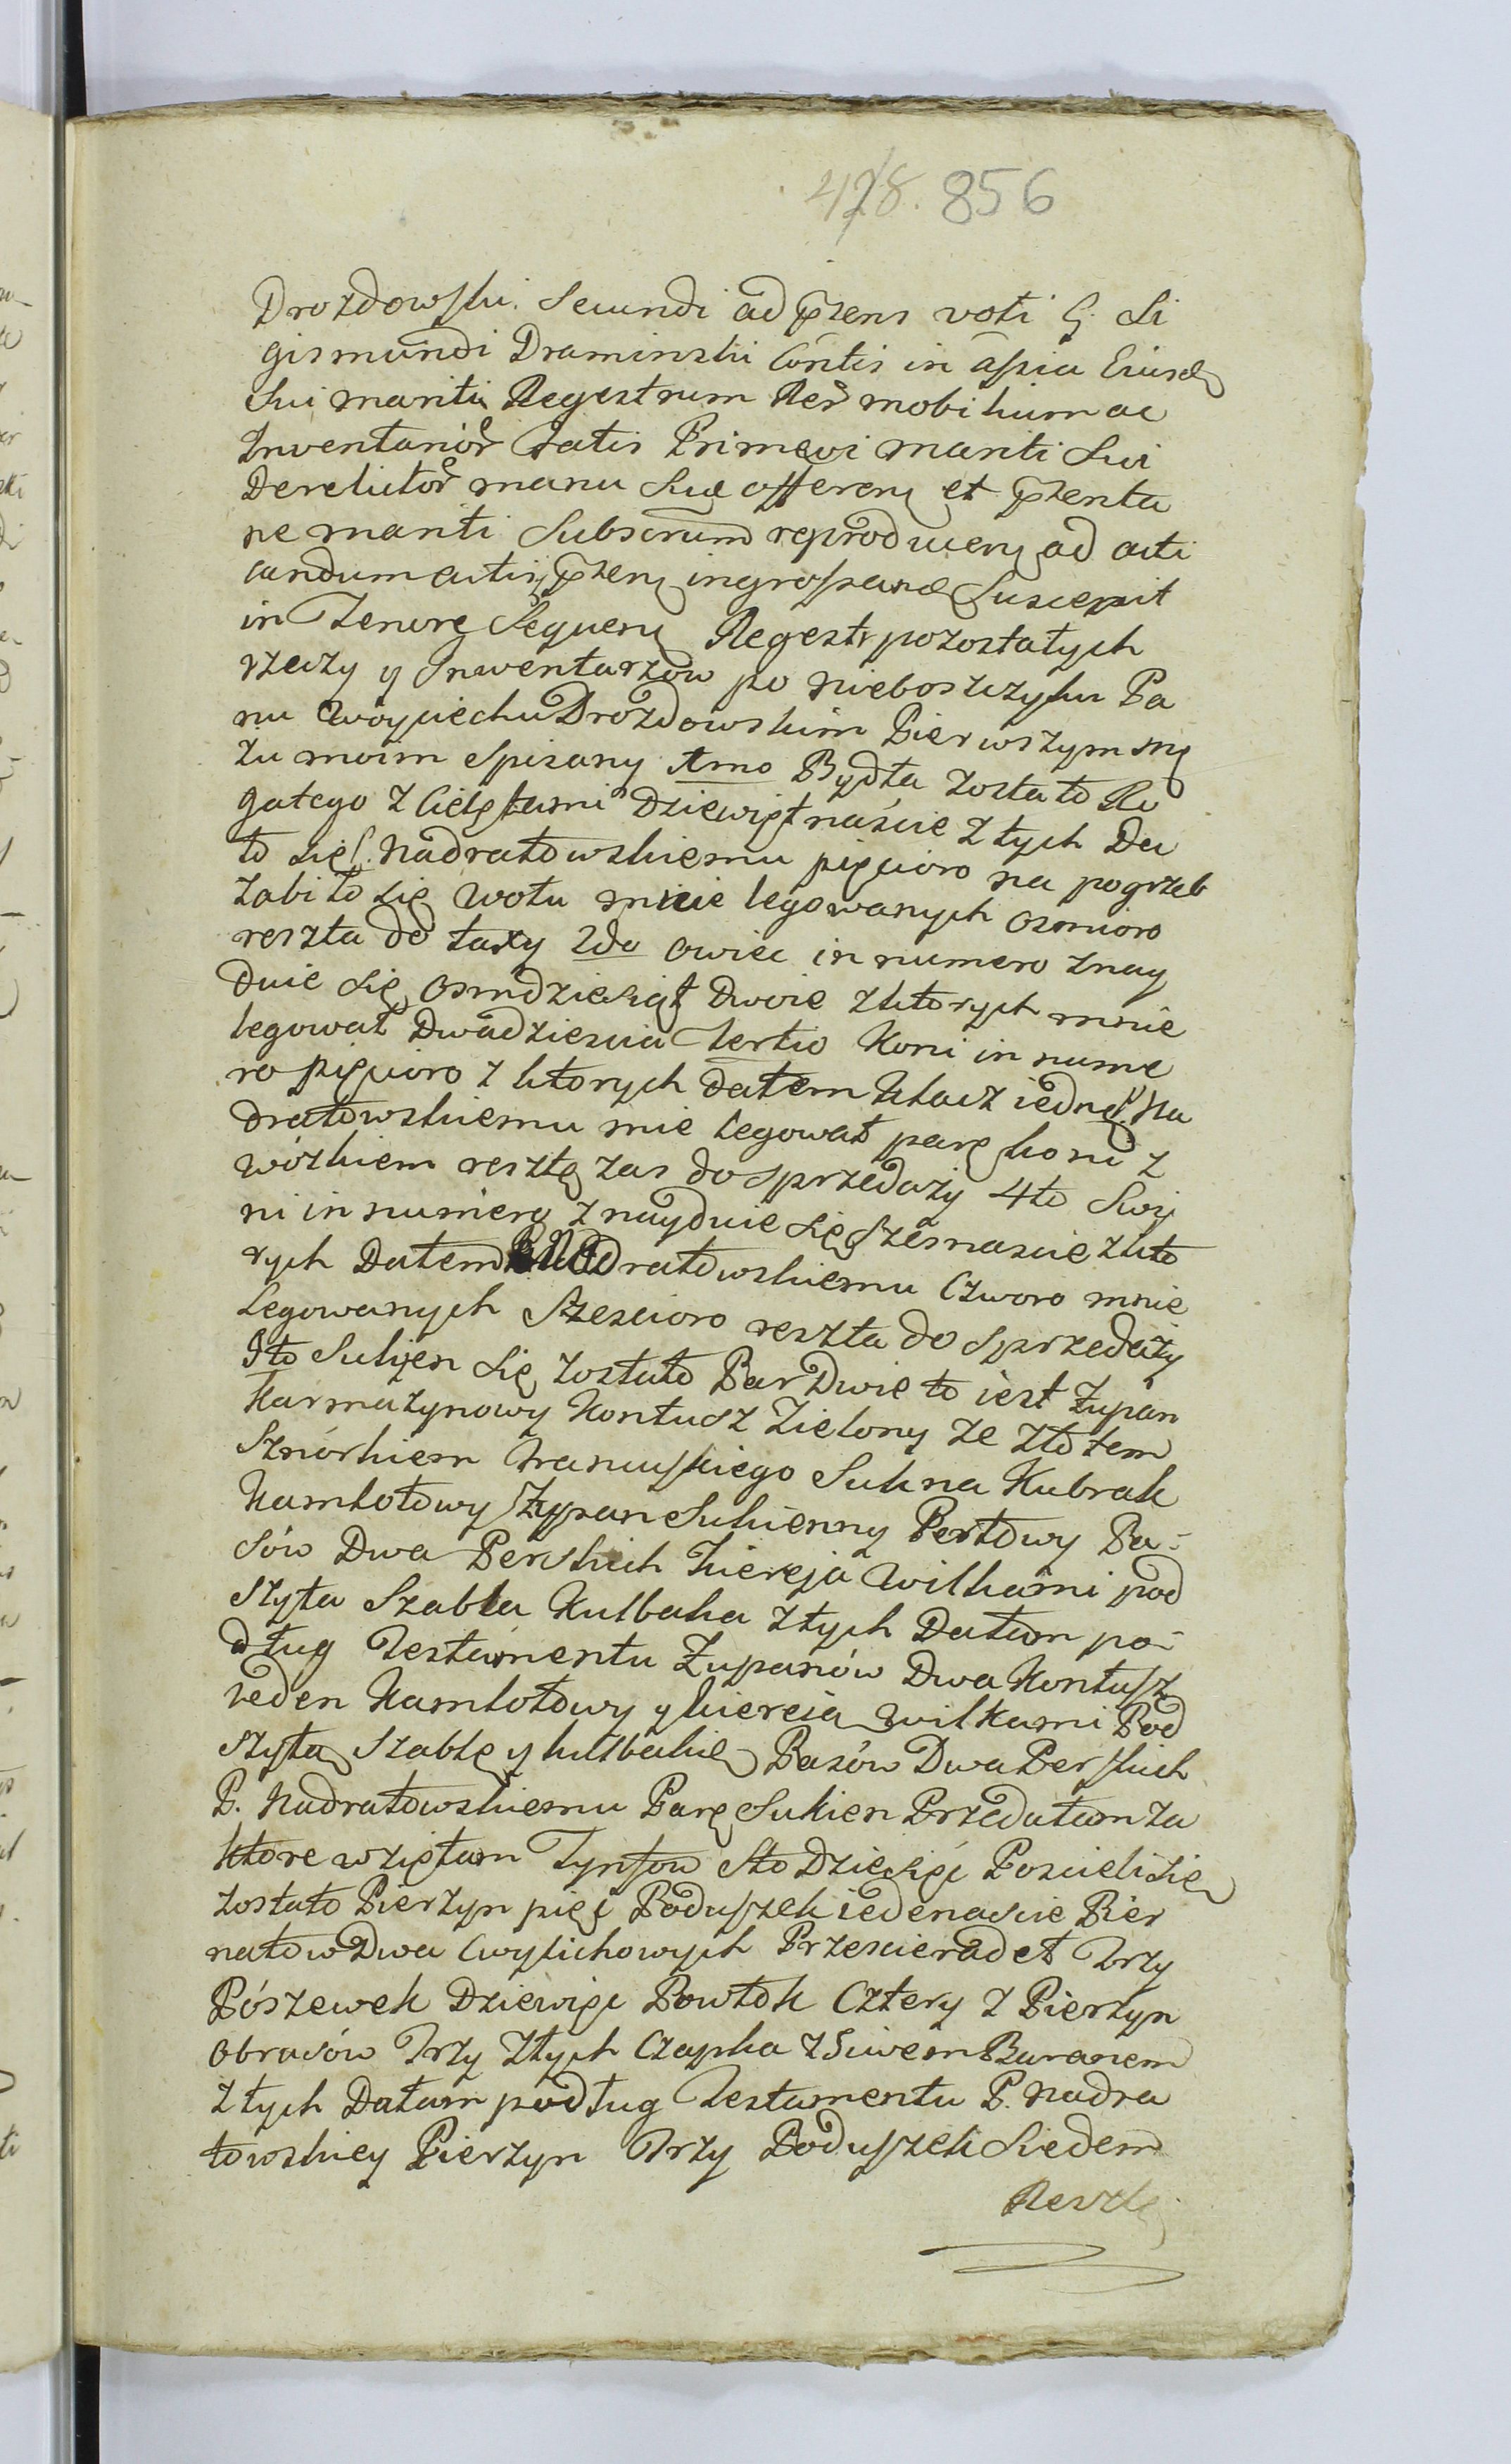 478. 856
Drozdowski. Secundi ad pñens voti G. Si
gismundi Draminski Cöntis in assia Eiusd
Sui mariti Regestrum Rer mobilium ac
Inventarior ratis Primevi mariti Sui
Derelictor manu Sua offeren et pñenta
ne mariti Subscrum reproducen ad acti
candum actis pñen ingrossand Suscepit
in Tenore Sequen Regestr pozostałych
rzeczy y Inwentarzow po nieboszczyku Pa
nu Woyciechu Drozdowskim Pierwszym mę
żu moim spisany Amo Bydła zostało Ro
gatego z Cielętami Dziewiętnaście z tych Da
ło się P. Nadratowskiemu pięcioro na pogrzeb
zabiło się wołu mnie legowanych osmioro
reszta do taxy 2do owiec in numero znay
duie się osmdziesiąt Dwoie z ktorych mnie
legował Dwadziescia Tertio Koni in nume
ro pięcioro z ktorych dałem klacz iednę P. Na
dratowskiemu mie legował parę koni z
wozkiem resztę zas do sprzedaży 4to Swi
ni in numero znayduie się szesnascie z kto
rych Dałem P. Nadratowskiemu Czworo mnie
Legowanych Szescioro reszta do sprzedaży
5to Sukien się zostało Par Dwie to iest Żupan
Karmazynowy Kontusz Zielony ze złotem
Sznórkiem Francuskiego Sukna Kubrak
Kamlotowy Żupan Sukienny Perłowy Pa-
sów Dwa Perskich Kiereja Wilkami pod
szyta Szabla Kulbaka z tych Dałam po-
dług Testamentu Żupanów Dwa Kontusz
ieden Kamlotowy y kiereia wilkami Pod
szytą Szablę y kulbakię Pasów Dwa Perskich
P. Nadratowskiemu Parę Sukien Przedałam za
ktore wzięłam Tynfow Sto Dziesięć Poscieli się
zostało Pierzyn pięć Poduszek iedenascie Pier
natow Dwa Cwylichowych Przescieradeł Trzy
Pószewek Dziewięć Powłok Cztery z Pierzyn
obrusów Trzy złych Czapka z Siwem Baranem
z tych Dałam podług Testamentu P. Nadra
towskiey Pierzyn Trzy Poduszek Siedem
Resztę